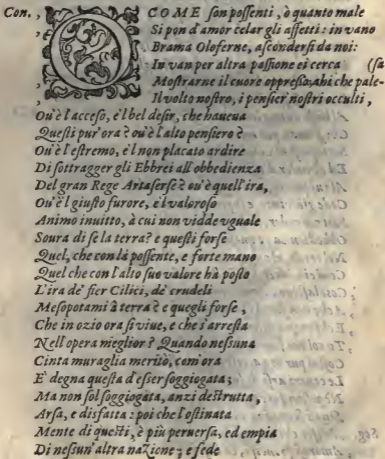 Con. , O COME son possenti, ò quanto male
Si pon d'amor celar gli affetti: in vano
Brama Oloferne, ascondersi da noi:
In van per altra passione ei cerca (sa
Mostrarne il cuore oppresso, ahi che pale-
Il volto nostro, i pensier nostri occulti,
Ou'è l'acceso, e'l bel desir, che haueua
Questi pur'ora è ou'è l'alto pensiero è
Ou'è l'estremo, e'l non placato ardire
Di sottragger gli Ebbrei all'obbedienza
Del gran Rege Artaserse è ou'è quell'ira,
Ou'è l giusto furore, e'l valoroso
Animo inuitto, à cui non vidde vguale
Soura di se la terra? e questi forse
Quel, che con la possente, e forte mano
Quel che con l'alto suo valore hà posto
L'ira de' fier Cilici, de' crudeli
Mesopotami à terra è e quegli forse,
Che in ozio ora si viue, e che s'arresta
Nell'opera miglior? Quando nessuna
Cinta muraglia meritò, com'ora
E' degna questa d'esser soggiogata;
Ma non sol soggiogata, anzi destrutta,
Arsa, e disfatta: poi che l'ostinata
Mente di questi, è più peruersa, ed empia
Di nessun'altra nazione; e fede